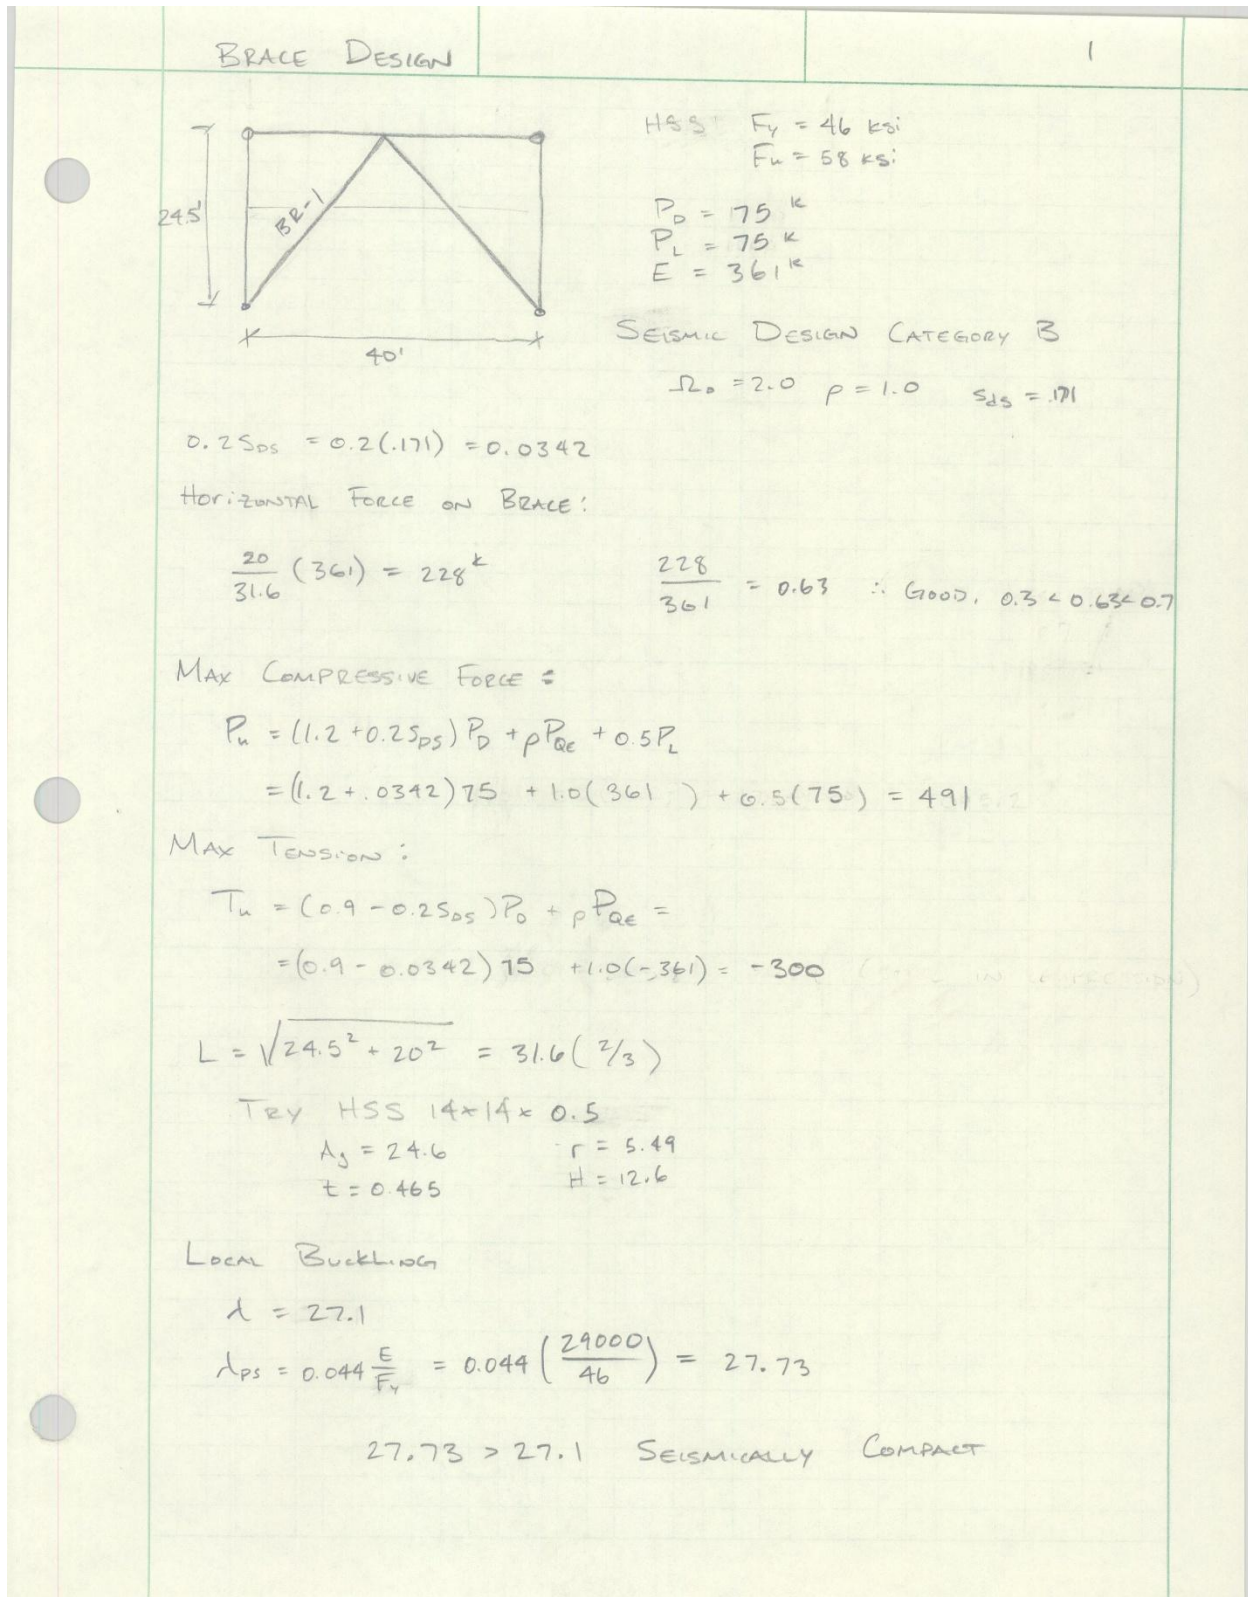 BRACE DESIGN
1
24.5'
BR-1
40'
HSS Fy = 46 ksi
Fu = 58 ksi
PD = 75 k
PL = 75 k
E = 361 k
SEISMIC DESIGN CATEGORY B
Ωo = 2.0 ρ = 1.0 Sds = .171
0.2SDS = 0.2(.171) = 0.0342
HORIZONTAL FORCE ON BRACE:
20/31.6 (361) = 228 k
228/361 = 0.63 ∴ GOOD, 0.3 < 0.63 < 0.7
MAX COMPRESSIVE FORCE:
Pu = (1.2 + 0.2SDS)PD + ρPQE + 0.5PL
= (1.2 + .0342)75 + 1.0(361 ) + 0.5(75 ) = 491
MAX TENSION:
Tu = (0.9 - 0.2SDS)PD + ρPQE =
= (0.9 - 0.0342)75 + 1.0(-361) = -300
L = √24.5² + 20² = 31.6(2/3)
TRY HSS 14×14× 0.5
Ag = 24.6 r = 5.49
t = 0.465 H = 12.6
LOCAL BUCKLING
λ = 27.1
λps = 0.044 E/Fy = 0.044 (29000/46) = 27.73
27.73 > 27.1 SEISMICALLY COMPACT